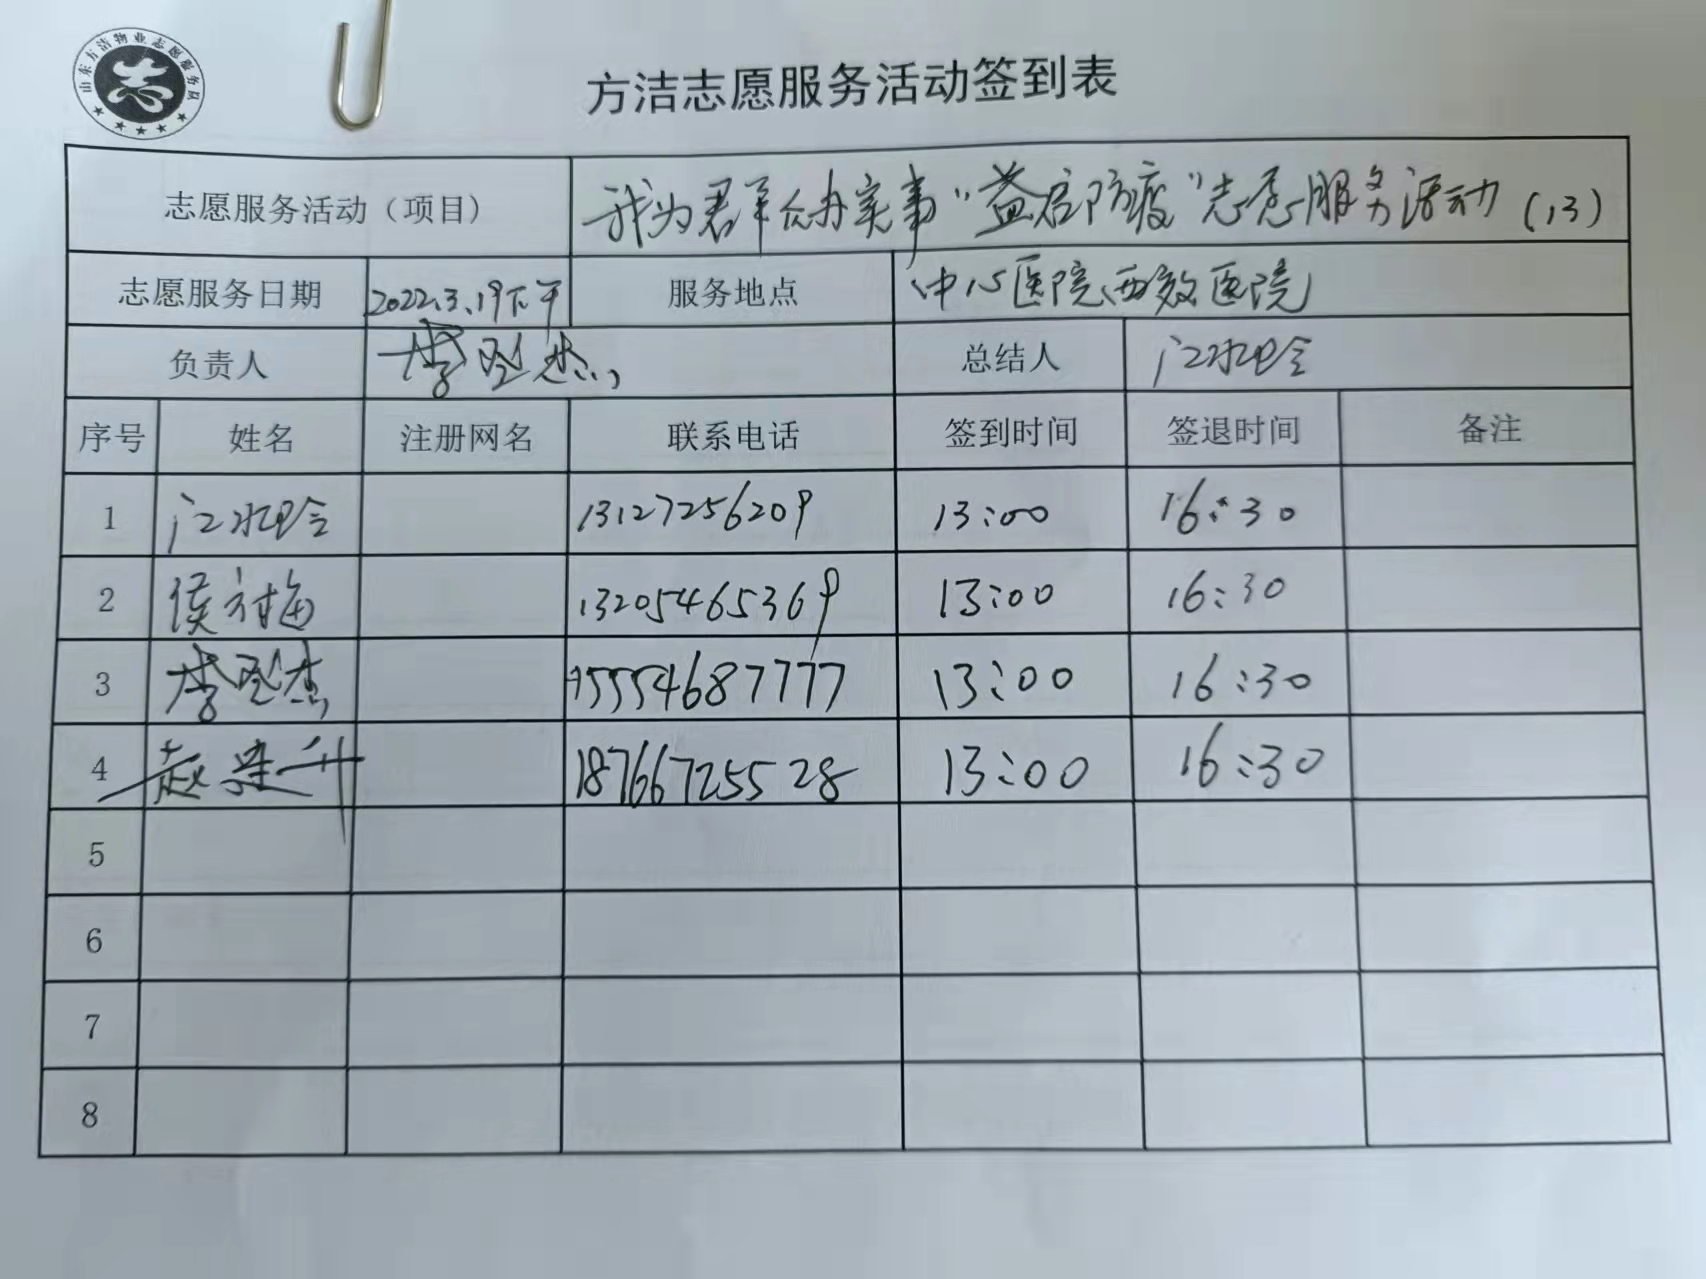 山东方洁物业志愿服务队
志
方洁志愿服务活动签到表
志愿服务活动（项目） 我为君羊众办实事“益启防疫”志愿服务活动（13）
志愿服务日期 2022.3.19下午 服务地点 中心医院西效医院
负责人 李 杰 总结人 江水
序号 姓名 注册网名 联系电话 签到时间 签退时间 备注
1 江水 13127256209 13:00 16:30
2 侯 梅 13205465369 13:00 16:30
3 李 杰 15554687777 13:00 16:30
4 赵 升 18766725528 13:00 16:30
5
6
7
8